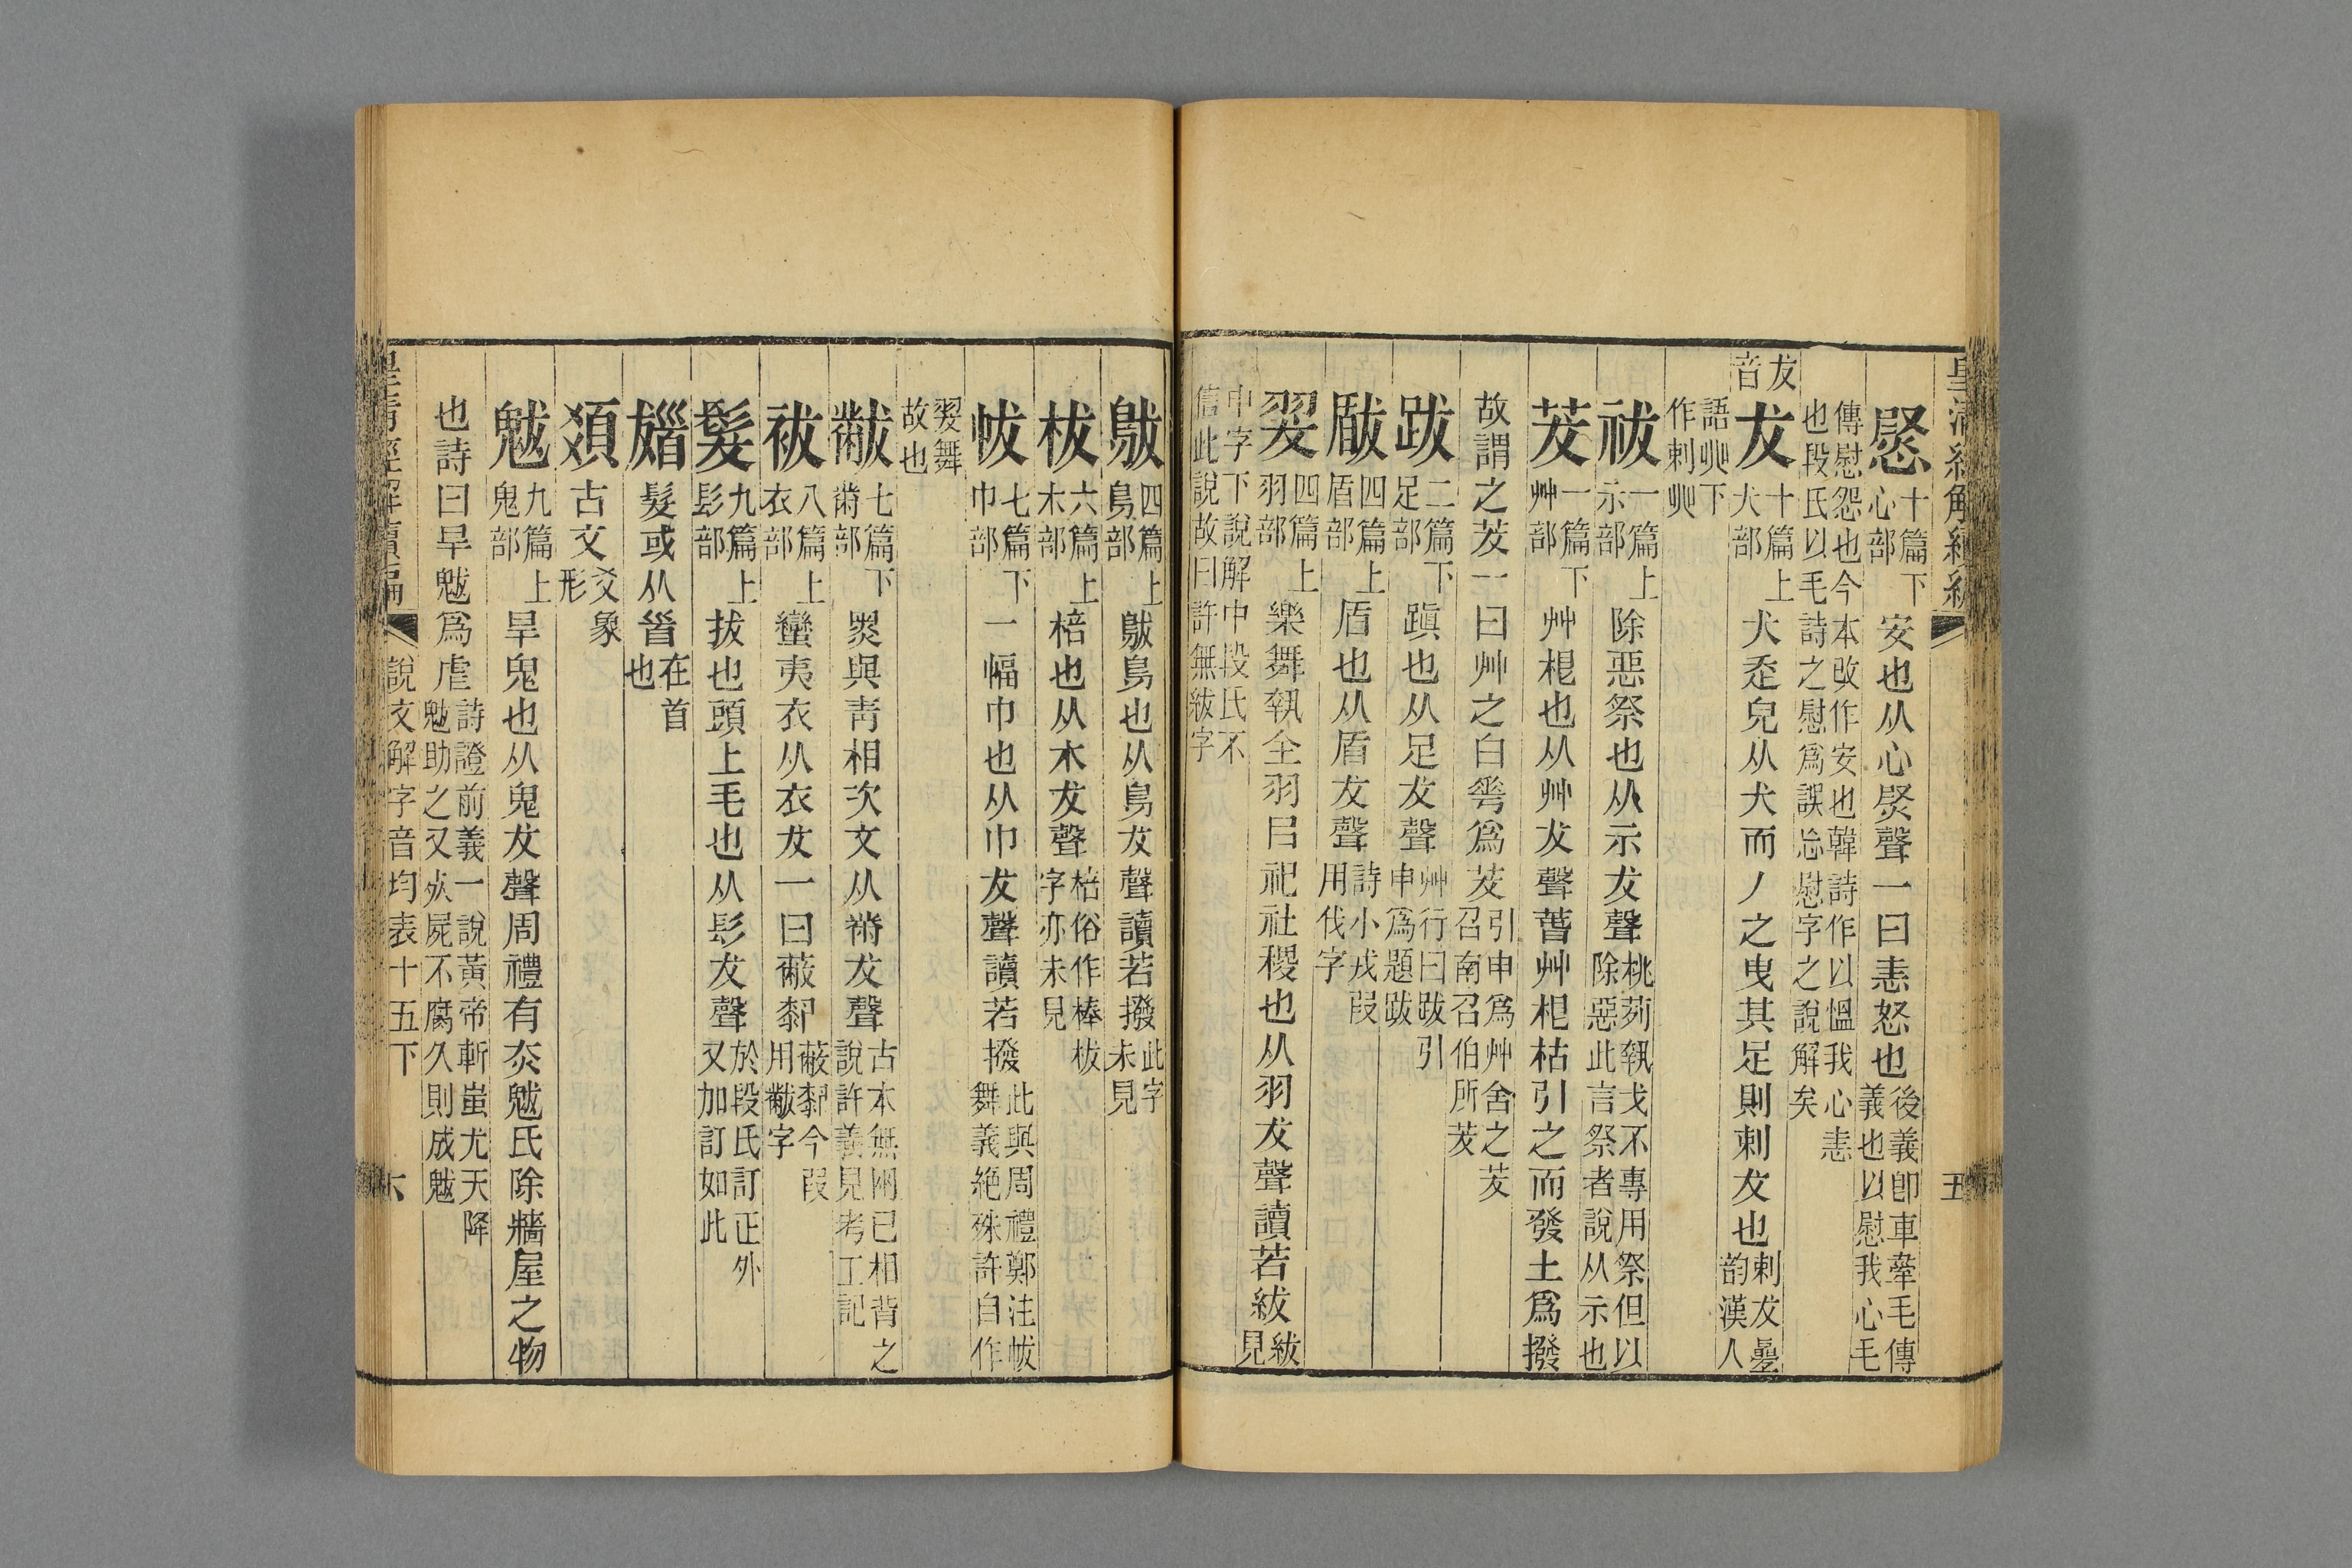 㥜十篇下心部安也从心㷉聲一曰恚怒也後義卽車舝毛傳義也以慰我心毛
傳慰怨也今本改作安也韓詩作以愠我心恚也段氏以毛詩之慰爲誤忩慰字之說解矣
犮音
犮十篇上犬部犬走皃从犬而丿之曳其足則刺犮也剌犮曡韵漢人
語𣥠下作剌𣥠
祓一篇上示部除惡祭也从示犮聲桃茢執戈不專用祭但以除惡此言祭者說从示也
茇一篇下艸部艸根也从艸犮聲春艸根枯引之而發土爲撥
故謂之茇一曰艸之白華爲茇引申爲艸舍之茇召南召伯所茇
跋二篇下足部蹎也从足犮聲艸行曰跋引申爲題跋
瞂四篇上盾部盾也从盾犮聲詩小戎叚用伐字
翇四篇上羽部樂舞執全羽㠯祀社稷也从羽犮聲讀若紱紱見
中字下說解中段氏不信此說故曰許無紱字
鼥四篇上鳥部鼥鳥也从鳥犮聲讀若撥此字未見
柭六篇上木部棓也从木犮聲棓俗作棒柭字亦未見
帗七篇下巾部一幅巾也从巾犮聲讀若撥此與周禮鄭注帗舞義絕殊許自作
翇舞故也
黻七篇下黹部黑與靑相次文从黹犮聲古本無兩已相背之說許義見考工記
袚八篇上衣部蠻夷衣从衣犮一曰蔽厀蔽厀今叚用黻字
髮九篇上髟部拔也頭上毛也从髟犮聲於段氏訂正外又加訂如此
𩠙髮或从𩠐在首也
𩑠古文爻象形
魃九篇上鬼部旱鬼也从鬼犮聲周禮有赤魃氏除牆屋之物
也詩曰旱魃爲虐詩證前義一說黃帝斬蚩尤天降魃助之又夾屍不腐久則成魃
皇淸經解續編
說文解字音均表十五下
六
皇淸經解續編
五